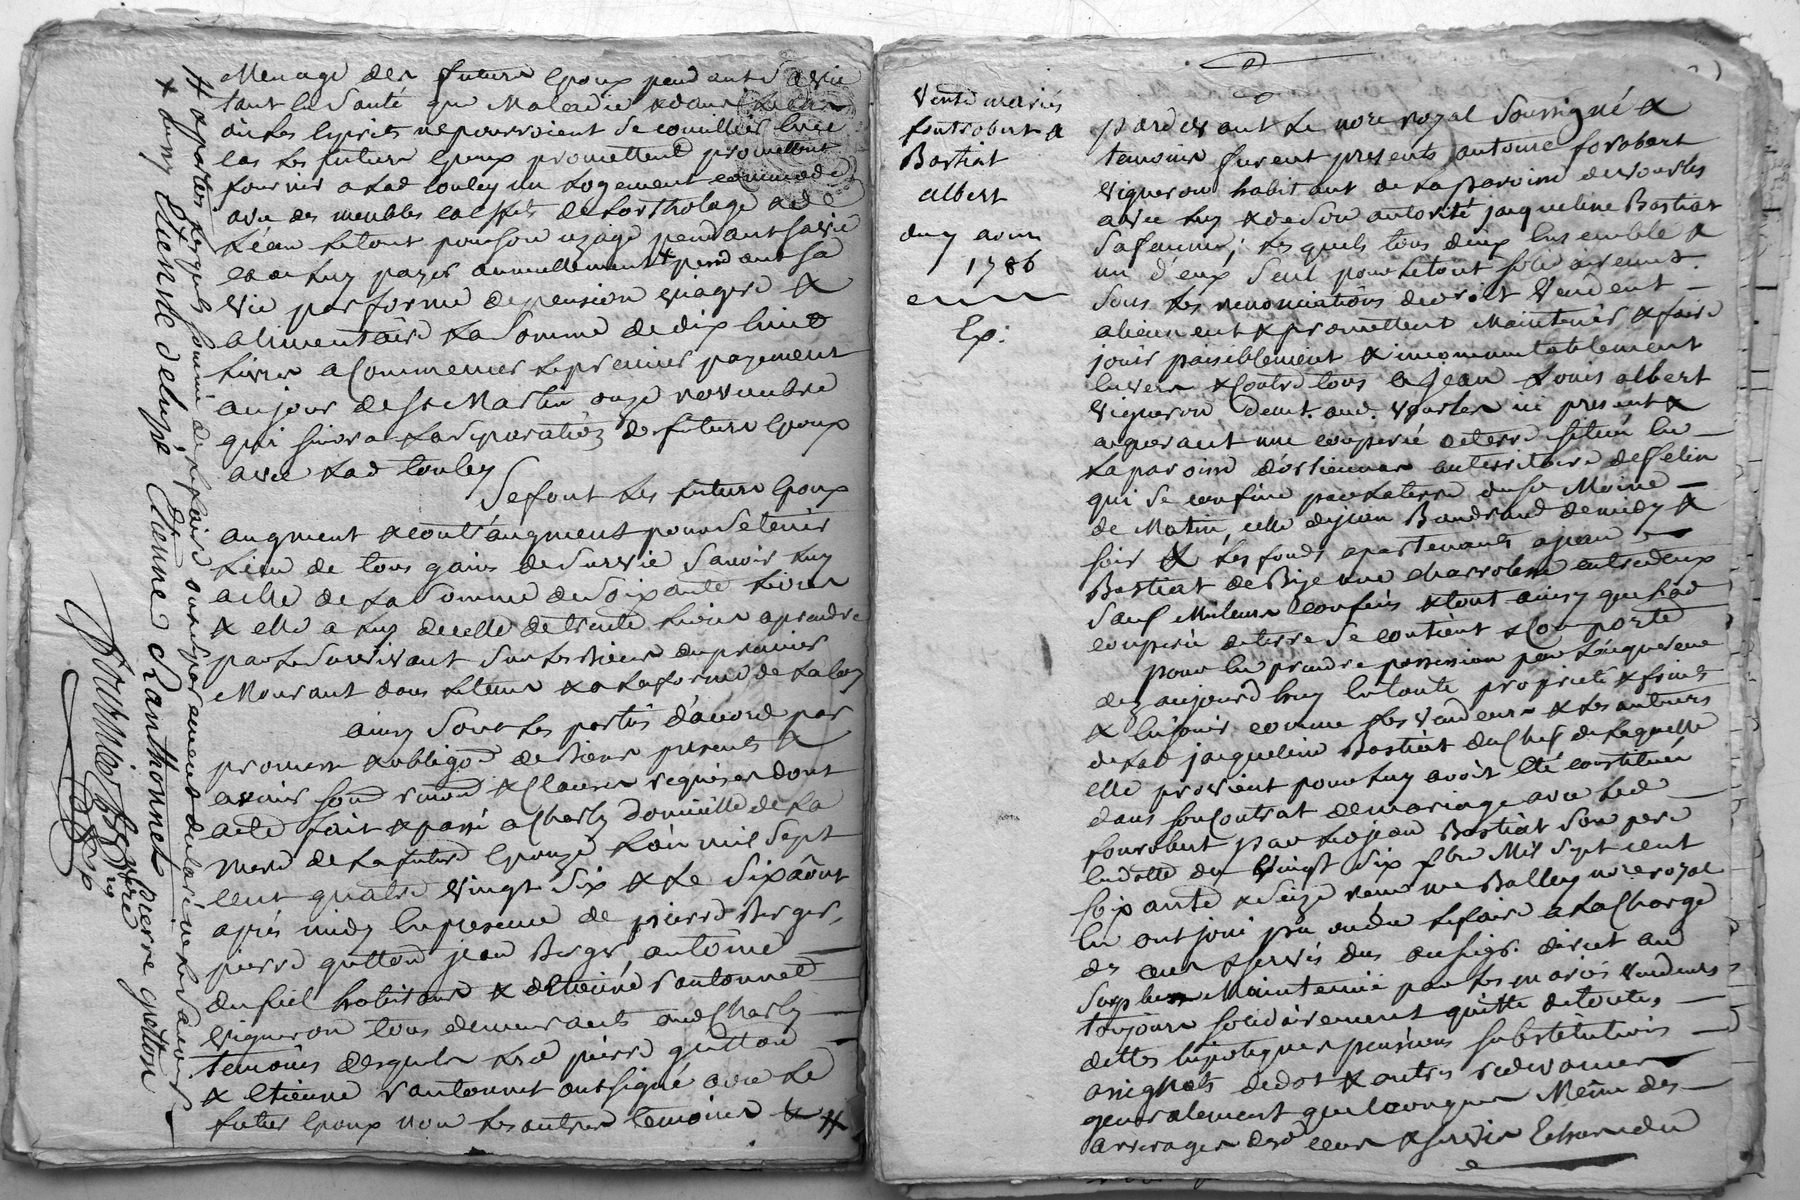 Menage des futurs Epoux pendant sa vie
tant en santé que Maladie & dans le cas
où les esprits ne pourroient se concillier en ce
cas les futurs Epoux promettent promettent
fournir a lad touley un logement commode
avec des meubles & effets de l'ortholage &
Léau le tout pour son uzage pendant sa vie
et de luy payer annuellement pendant sa
Vie par forme de pension viagere &
alimentaire La somme de dix huit
Livres a Commencer le premier payement
au jour de St Martin onze novembre
qui suivra La séparation des futurs Epoux
avec Lad touley
Se font Les futurs Epoux
augment & contr'augment pour se tenir
Lieu de tous gains de survie savoir luy
a elle de La somme de soixante Livres
& elle a luy de celle de trente Livres a prendre
par le survivant sur les biens du premier
Mourant dans le tems & a La forme de La loy
ainsy sont les parties d'accord par
promesse & obligõn de biens presents &
avenir & Clauses requises dont
acte fait & passé a Charly domicille de La
Mere de La future Epouze L'an mil sept
cent quatre vingt six & Le six aôut
après midy en presence de pierre Berger,
pierre guttond jean Berger antoine
dufiel habitans & detienne Santonnet
Vigneron tous demeurants aud Charly
temoins desquels Led pierre gutton
& etienne Santonnet ont signé avec Le
futur Epoux non les autres temoins &
de ce faire ont séparement declaré ne Le savoir
Etienne delupé Etienne Santhonnet pierre gutton
Vente mariés
fontrobert &
Bastiat
albert
du 7 aoust
1786
Ex:
Pardevant Le nore royal soussigné &
temoins furent presents antoine forobert
Vigneron habitant de La paroisse de vourles
avec luy & de son autorité jacqueline Bastiat
sa femme; Lesquels tous deux Ensemble &
un d'eux seul pour Le tout solidairement
sous Les renonciations de droit Vendent
alienent & promettent Maintenir & faire
jouir paisiblement & incommutablement
envers & Contre tous a jean Louis albert
Vigneron demt. aud. Vourles ici present &
acquerant une couperie de terre située en
La paroisse d'orlienas au territoire de felin
qui se confine par La terre du sr Moine
de Matin, celle de jean Bandrand de midy &
soir & Les fonds apartenants a jean
Bastiat de Bize une charroliere entredeux
sauf Meilleurs confins & tout ainsy que Lad
couperie de terre se contient & Comporte
pour en prendre possession par L'acquereur
dez aujourd huy en toute propriété & fruits
& en jouir comme les vendeurs & les auteurs
de Lad jacqueline Bastiat du Chef de Laquelle
elle provient pour luy avoir été constituée
dans son Contrat de mariage avec Led
fourobert par Led jean Bastiat son pere
en datte du Vingt six 7bre Mil sept cent
soixante & seize reçu me Balley nore royal
en ont joui pu ou du Le faire a La Charge
des cens & servis dus au seigr. direct au
surplus Maintenue par Les mariés vendeurs
toujours solidairement quitte de toutes
dettes hipoteques pensions substitutions
assignats de dot & autres redevances
generalement quelconques Même des
arrerages desd cens & servis Echus du